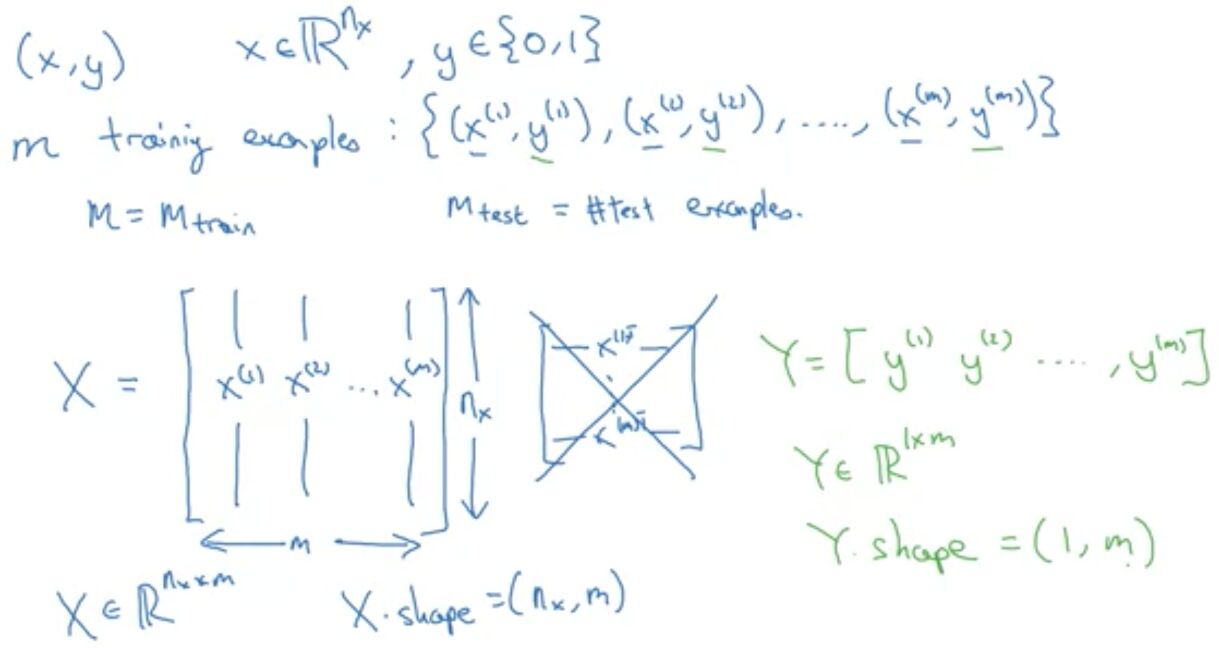 (x,y) x∈ℝ^{n_x}, y∈{0,1}
m training examples : {(x^{(1)}, y^{(1)}), (x^{(2)}, y^{(2)}), ...., (x^{(m)}, y^{(m)})}
M = M_{train} M_{test} = #test examples.
X = [ x^{(1)} x^{(2)} ... x^{(m)} ] n_x
m
x^{(1)T}
x^{(m)T}
Y = [ y^{(1)} y^{(2)} ...., y^{(m)} ]
Y∈ ℝ^{1×m}
Y.shape = (1, m)
X ∈ ℝ^{n_x×m} X.shape = (n_x, m)